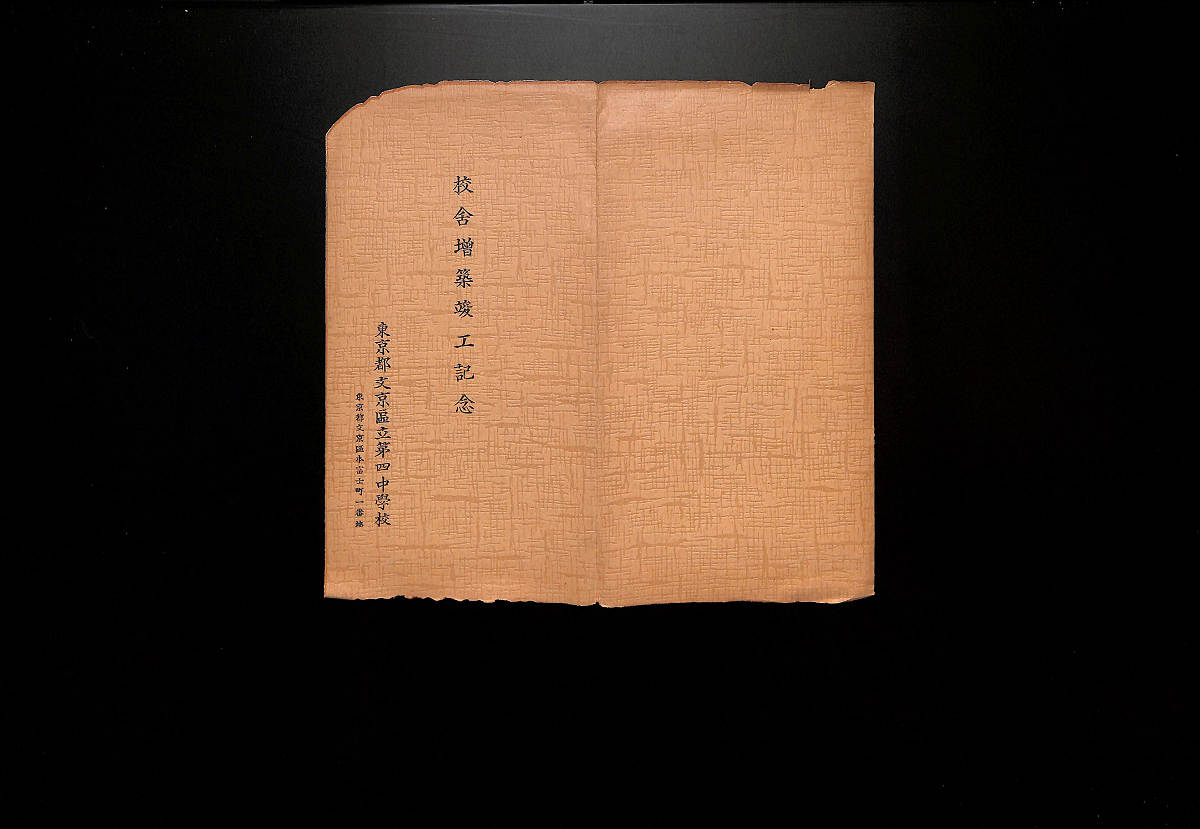 校舍增築竣工記念
東京都文京區立第四中學校
東京都文京區本富士町一番地